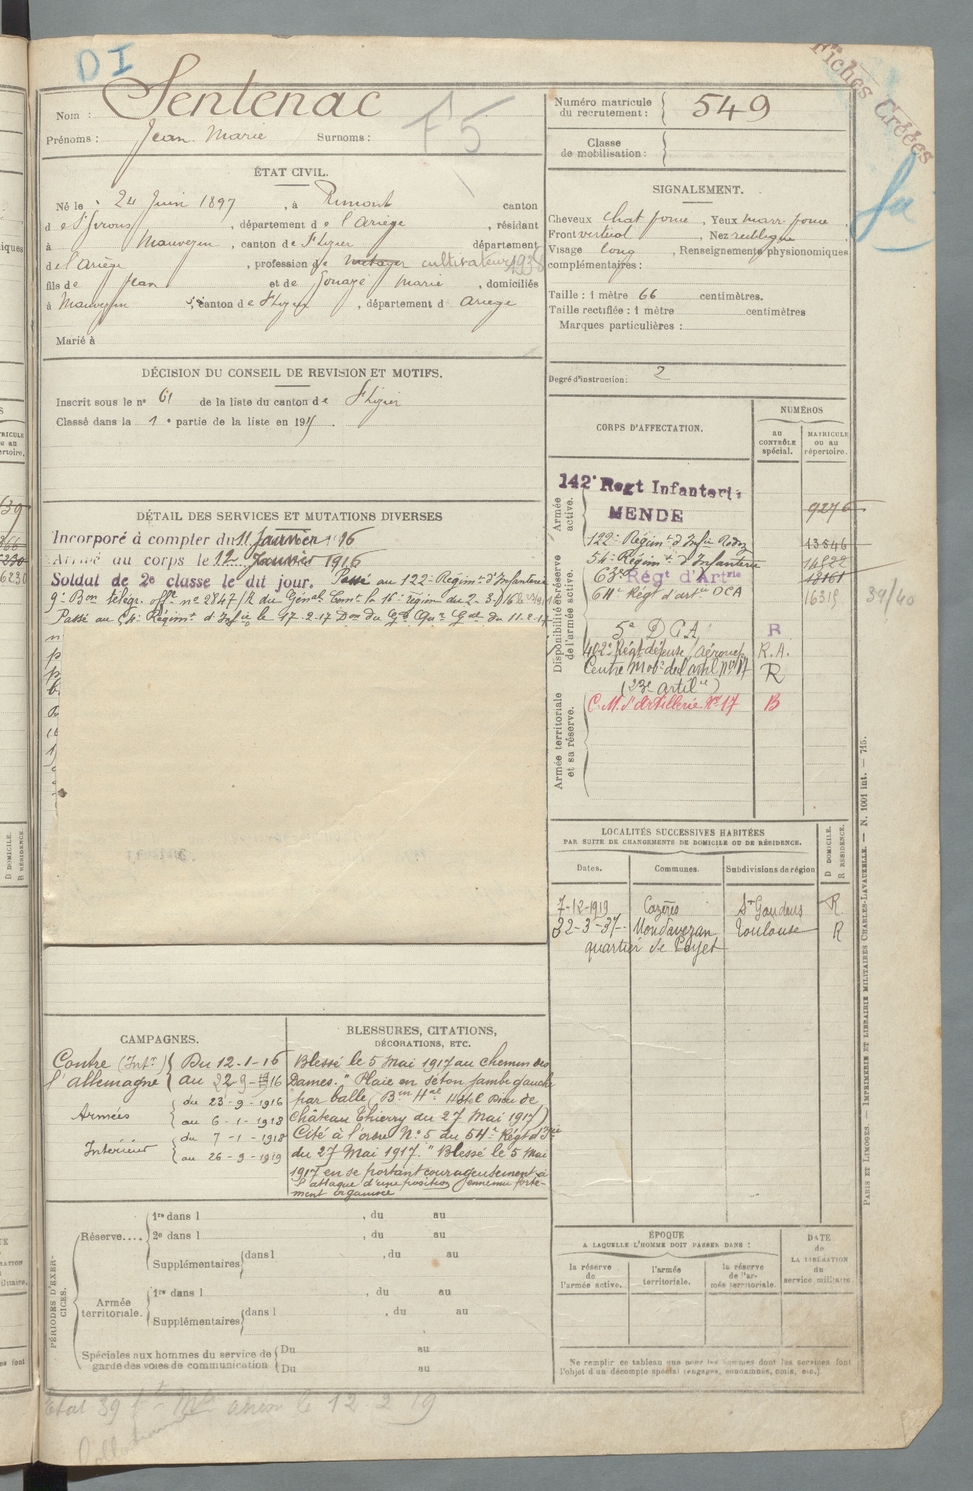 DI
Fiches Créées
Nom : Sentenac
Prénoms : Jean Marie Surnoms :
F5
Numéro matricule du recrutement : 549
Classe de mobilisation :
ÉTAT CIVIL.
Né le 24 Juin 1897, à Rimont canton
d e St Girons, département d e l'Ariège, résidant
à Mauvezin, canton de St Lizier département
d e l'Ariège, profession de métayer cultivateur
fils de Jean et de Souayé Marie, domiciliés
à Mauvezin, canton d e St Lizier, département d Ariège
Marié à
SIGNALEMENT.
Cheveux chat fonc, Yeux marr fonc,
Front vertical, Nez rectiligne
Visage long, Renseignements physionomiques
complémentaires :
Taille : 1 mètre 66 centimètres.
Taille rectifiée : 1 mètre centimètres
Marques particulières :
Degré d'instruction : 2
DÉCISION DU CONSEIL DE REVISION ET MOTIFS.
Inscrit sous le n° 61 de la liste du canton d e St Lizier
Classé dans la 1e partie de la liste en 191
DÉTAIL DES SERVICES ET MUTATIONS DIVERSES
Incorporé à compter du 11 Janvier 1916
Arrivé au corps le 12 Janvier 1916
Soldat de 2e classe le dit jour. Passé au 122e Régimt d'Infanterie
9e Bon télégr. offel n° 2847/R du Génal Comt la 16e région du 2-3-16
Passé au 54e Régimt d'Infie le 17-2-17 Don du Gd Qer Gal du 11-2-17
CORPS D'AFFECTATION.
NUMÉROS
au CONTRÔLE spécial.
MATRICULE ou au répertoire.
Armée active.
Disponibilité et réserve de l'armée active.
Armée territoriale et sa réserve.
142e Regt Infanterie
MENDE
9276
122e Régimt d'Infie Rodez 13846
54e Régimt d'Infanterie 14822
63e Régt d'Artrie 18161
64e Régt d'artie DCA 16319
39/40
5e D C A R
402e Régt défense Aérone R.A.
Centre Mobe de l'artil N° 17 R
(23e artille)
C.M. d'Artillerie N° 17 B
LOCALITÉS SUCCESSIVES HABITÉES
PAR SUITE DE CHANGEMENTS DE DOMICILE OU DE RÉSIDENCE.
D DOMICILE.
R RÉSIDENCE.
Dates. Communes. Subdivisions de région
7-12-1919 Cazères St Gaudens R
22-3-37 Mondavezan Toulouse R
quartier de Poyet
CAMPAGNES.
Contre (Intr) Du 12-1-16
l'allemagne au 22-9-16
Armées du 23-9-1916
au 6-1-1918
Intérieur du 7-1-1918
au 26-9-1919
BLESSURES, CITATIONS,
DÉCORATIONS, ETC.
Blessé le 5 Mai 1917 au chemin des
Dames. "Plaie en séton jambe gauche
par balle (Bin Hal Hôtel Dieu de
Château Thierry du 27 Mai 1917)
Cité à l'ordre N° 5 du 54e Régt d'Ie
du 27 Mai 1917. "Blessé le 5 Mai
1917 en se portant courageusement à
l'attaque d'une position ennemie forte-
ment organisée
PÉRIODES D'EXER-
CICES.
Réserve....
1re dans l , du au
2e dans l , du au
Supplémentaires dans l , du au
Armée territoriale.
1re dans l , du au
Supplémentaires dans l , du au
Spéciales aux hommes du service de
garde des voies de communication
Du au
Du au
ÉPOQUE
A LAQUELLE L'HOMME DOIT PASSER DANS :
la réserve de l'armée active.
l'armée territoriale.
la réserve de l'armée territoriale.
DATE de LA LIBÉRATION du service militaire.
Ne remplir ce tableau que pour les hommes dont les services font
l'objet d'un décompte spécial (engagés, condamnés, omis, etc.).
PARIS ET LIMOGES. — IMPRIMERIE ET LIBRAIRIE MILITAIRES CHARLES-LAVAUZELLE. — N. 1001 int. — 715.
Etat 39 le 12 2 19